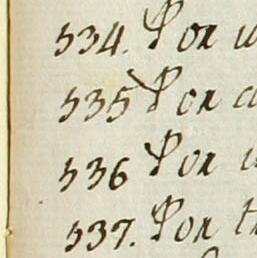 534. Por u
535 Por a
536 Por u
537. Por th